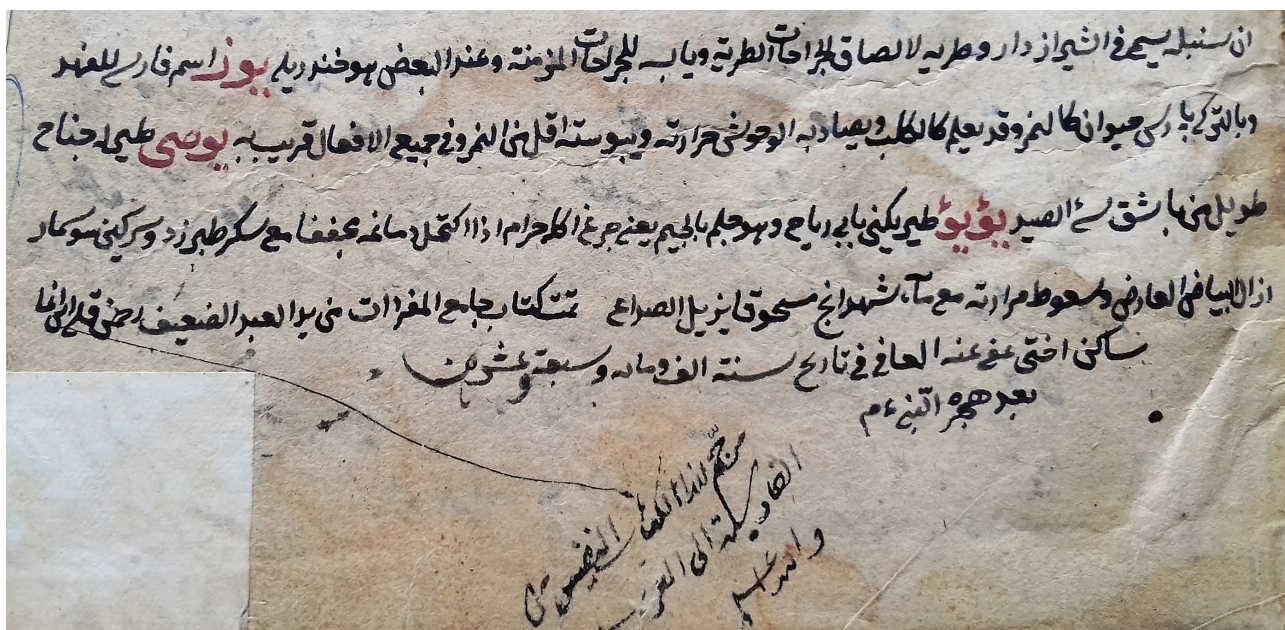 ان سنبله يسمى في الشيراز دارو طريه لالصاق الجراحات الطرية ويابسه للجراحات المزمنة وعند البعض هو خندريله يوز اسم فارسي للفهد
وبالتركي پارس حيوان كالنمر وقد يعلم كالكلب ويصاد به الوحوش حرارته ويبوسته اقل من النمر وفي جميع الافعال قريب به يوصى طير له جناح
طويل من باشق سئ الصيد يؤيؤ طير يكنى بابي رياح وهو جلم بالجيم يعني چرغ اكله حرام اذا اكتحل دماغه مجففا مع سكر طبرزد وسركين سوسمار
ازال البياض العارض وسعوط مرارته مع ماء شهدانج مسحوقا يزيل الصداع تمت كتاب جامع المفردات من يد العبد الضعيف
ساكن عفى عنه العافي في تاريخ سنة الف ومائه وسبعة وعشرين
بعد هجره النبي ءم
لهذا الكتاب النفيس من
الفارسية الى العربية
والله اعلم